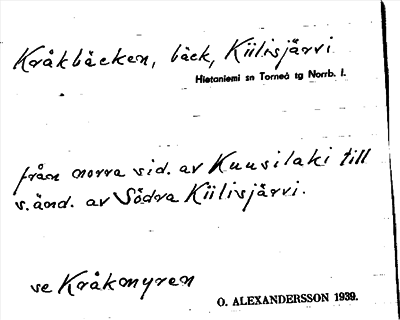 Kråkbäcken, bäck, Kiilisjärvi
Hietaniemi sn Torneå tg Norrb. l.
från norra sid. av Kuusilaki till
s.änd. av Södra Kiilisjärvi.
se Kråkmyren
O. ALEXANDERSSON 1939.